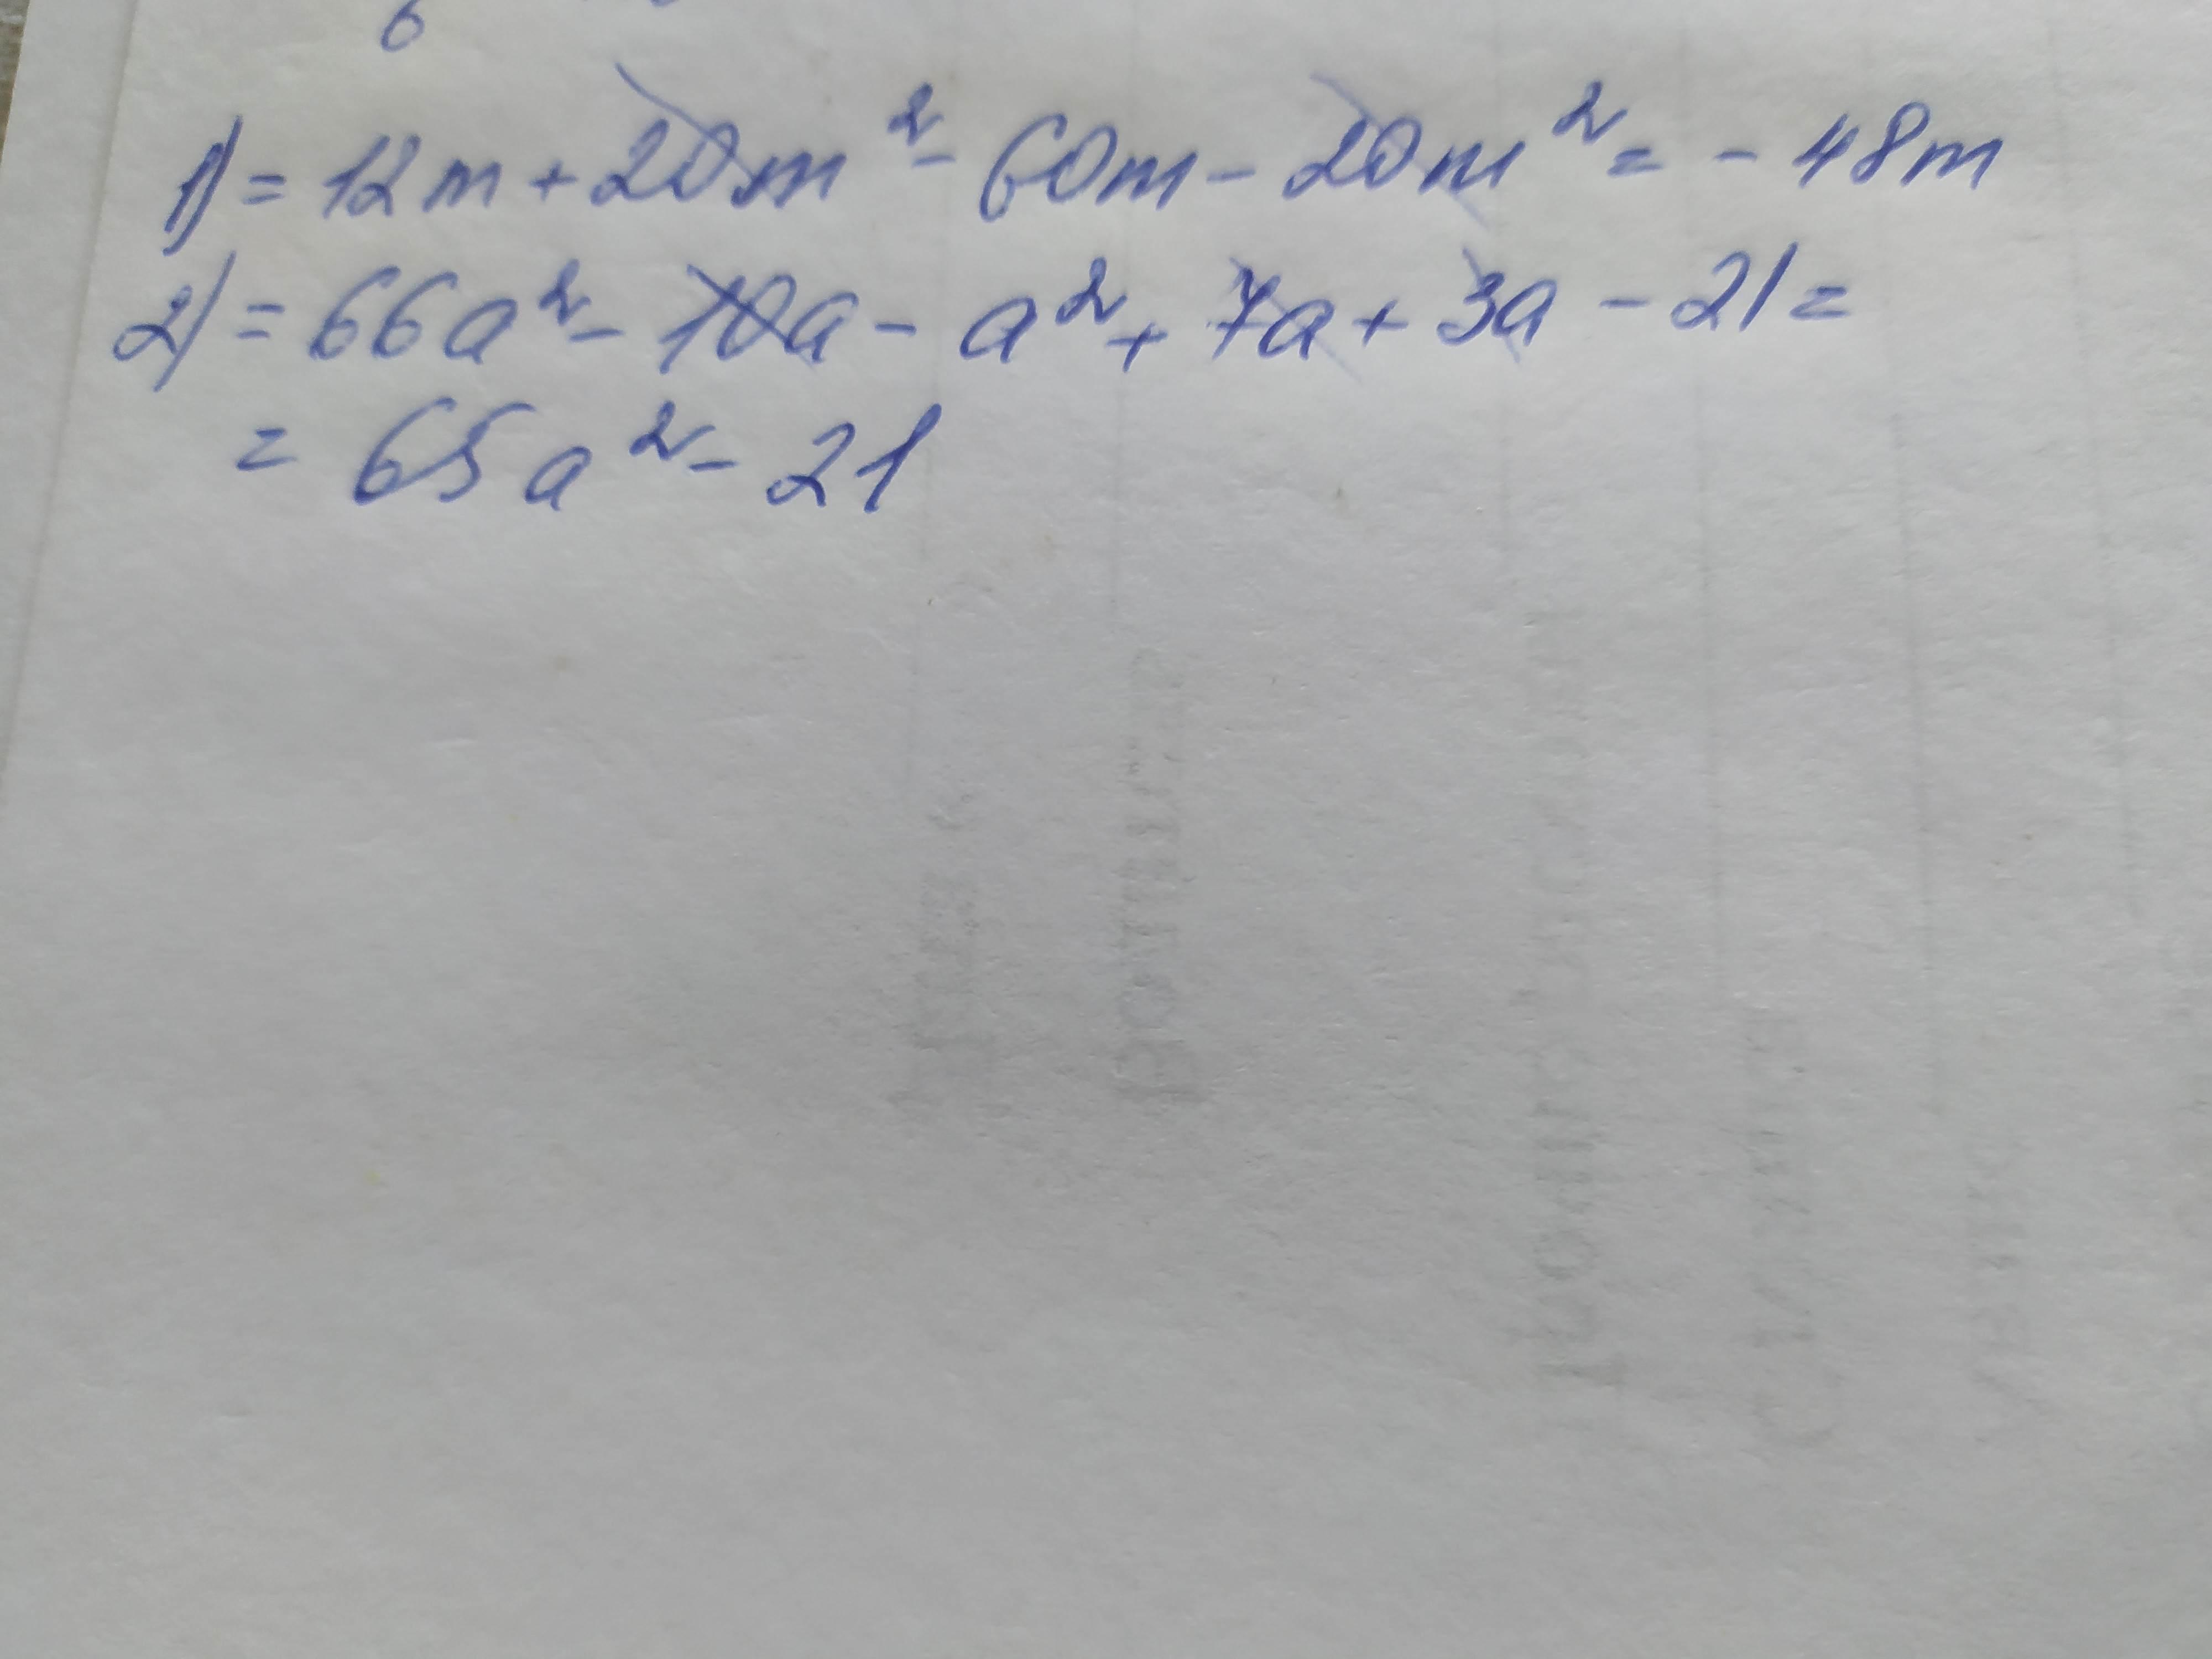 6
1) = 12m + 20m² - 60m - 20m² = - 48m
2) = 66a² - 10a - a² + 7a + 3a - 21 =
= 65a² - 21